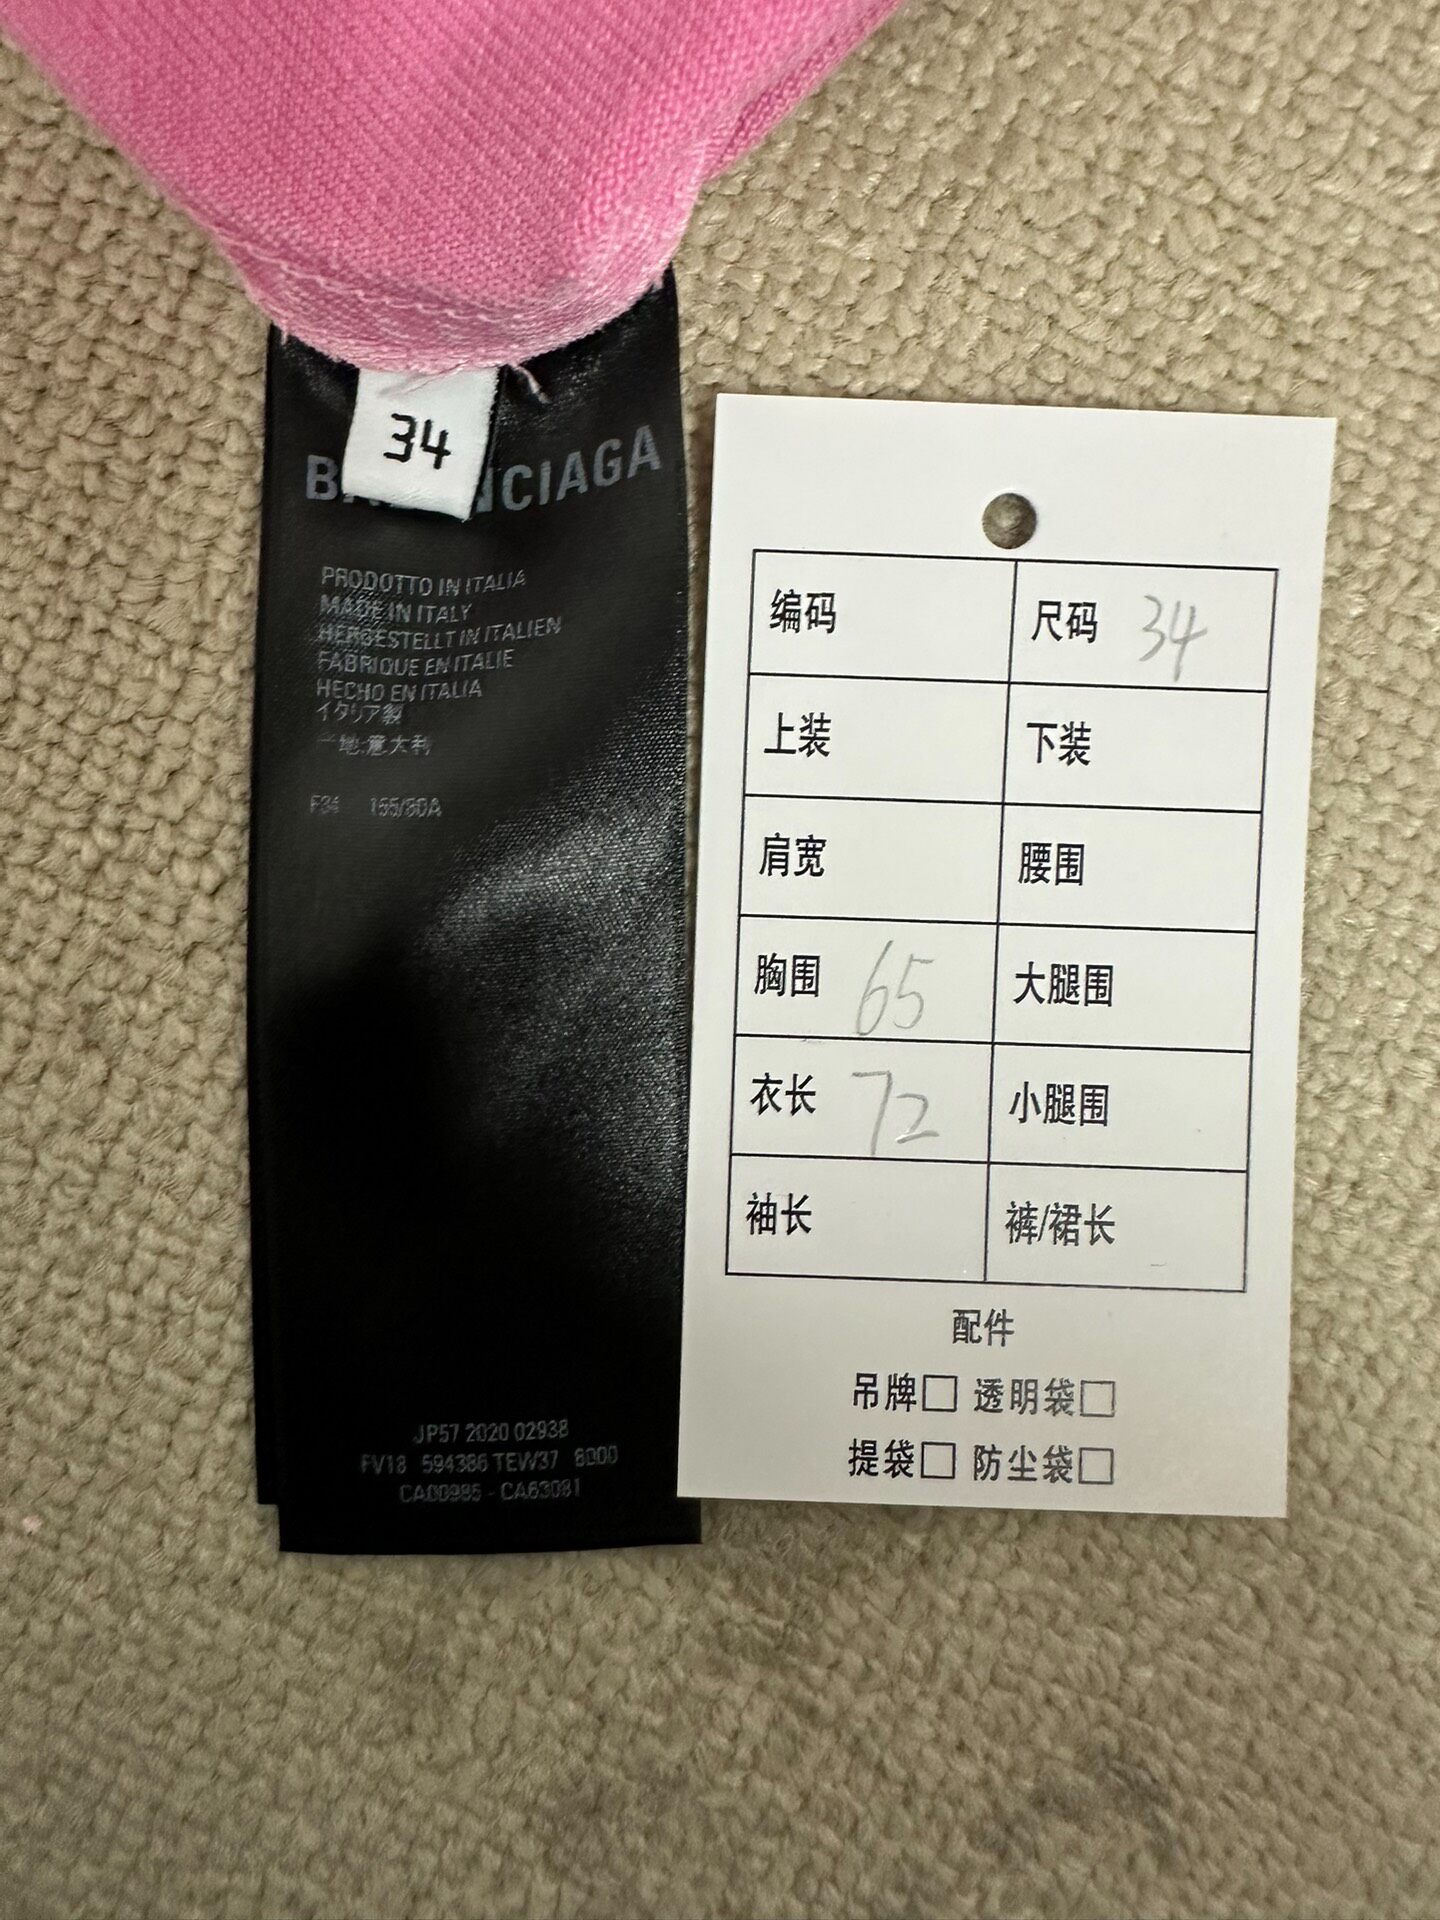 34
BALENCIAGA
PRODOTTO IN ITALIA
MADE IN ITALY
HERGESTELLT IN ITALIEN
FABRIQUE EN ITALIE
HECHO EN ITALIA
イタリア製
地:意大利
F34 155/80A
JP57 2020 02938
FV18 594386 TEW37 8000
CA00985 - CA63081
编码
尺码 34
上装
下装
肩宽
腰围
胸围 65
大腿围
衣长 72
小腿围
袖长
裤/裙长
配件
吊牌□ 透明袋□
提袋□ 防尘袋□